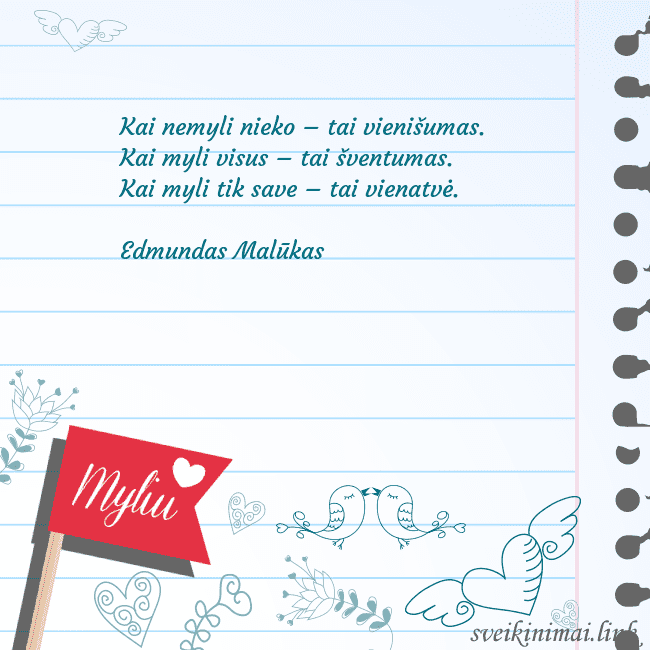 Kai nemyli nieko – tai vienišumas.
Kai myli visus – tai šventumas.
Kai myli tik save – tai vienatvė.
Edmundas Malūkas
Myliu
sveikinimai.link